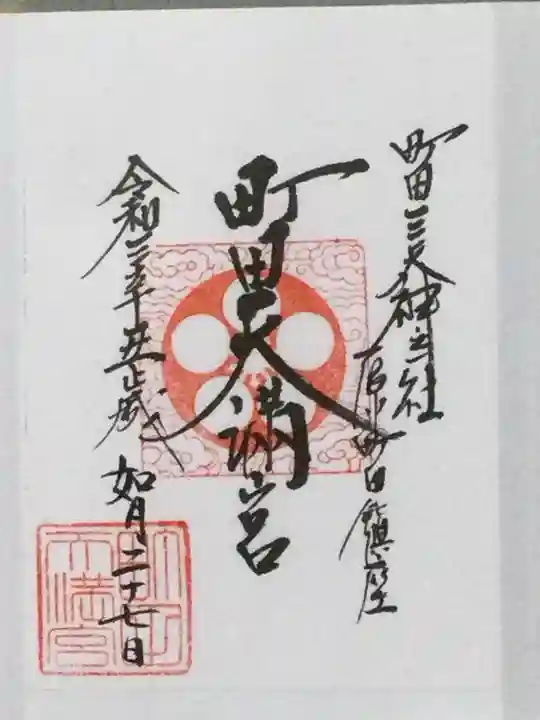 町田三天神之社
原町田鎮座
町田天満宮
令和三年丑歳
如月二十七日
町田
天満宮